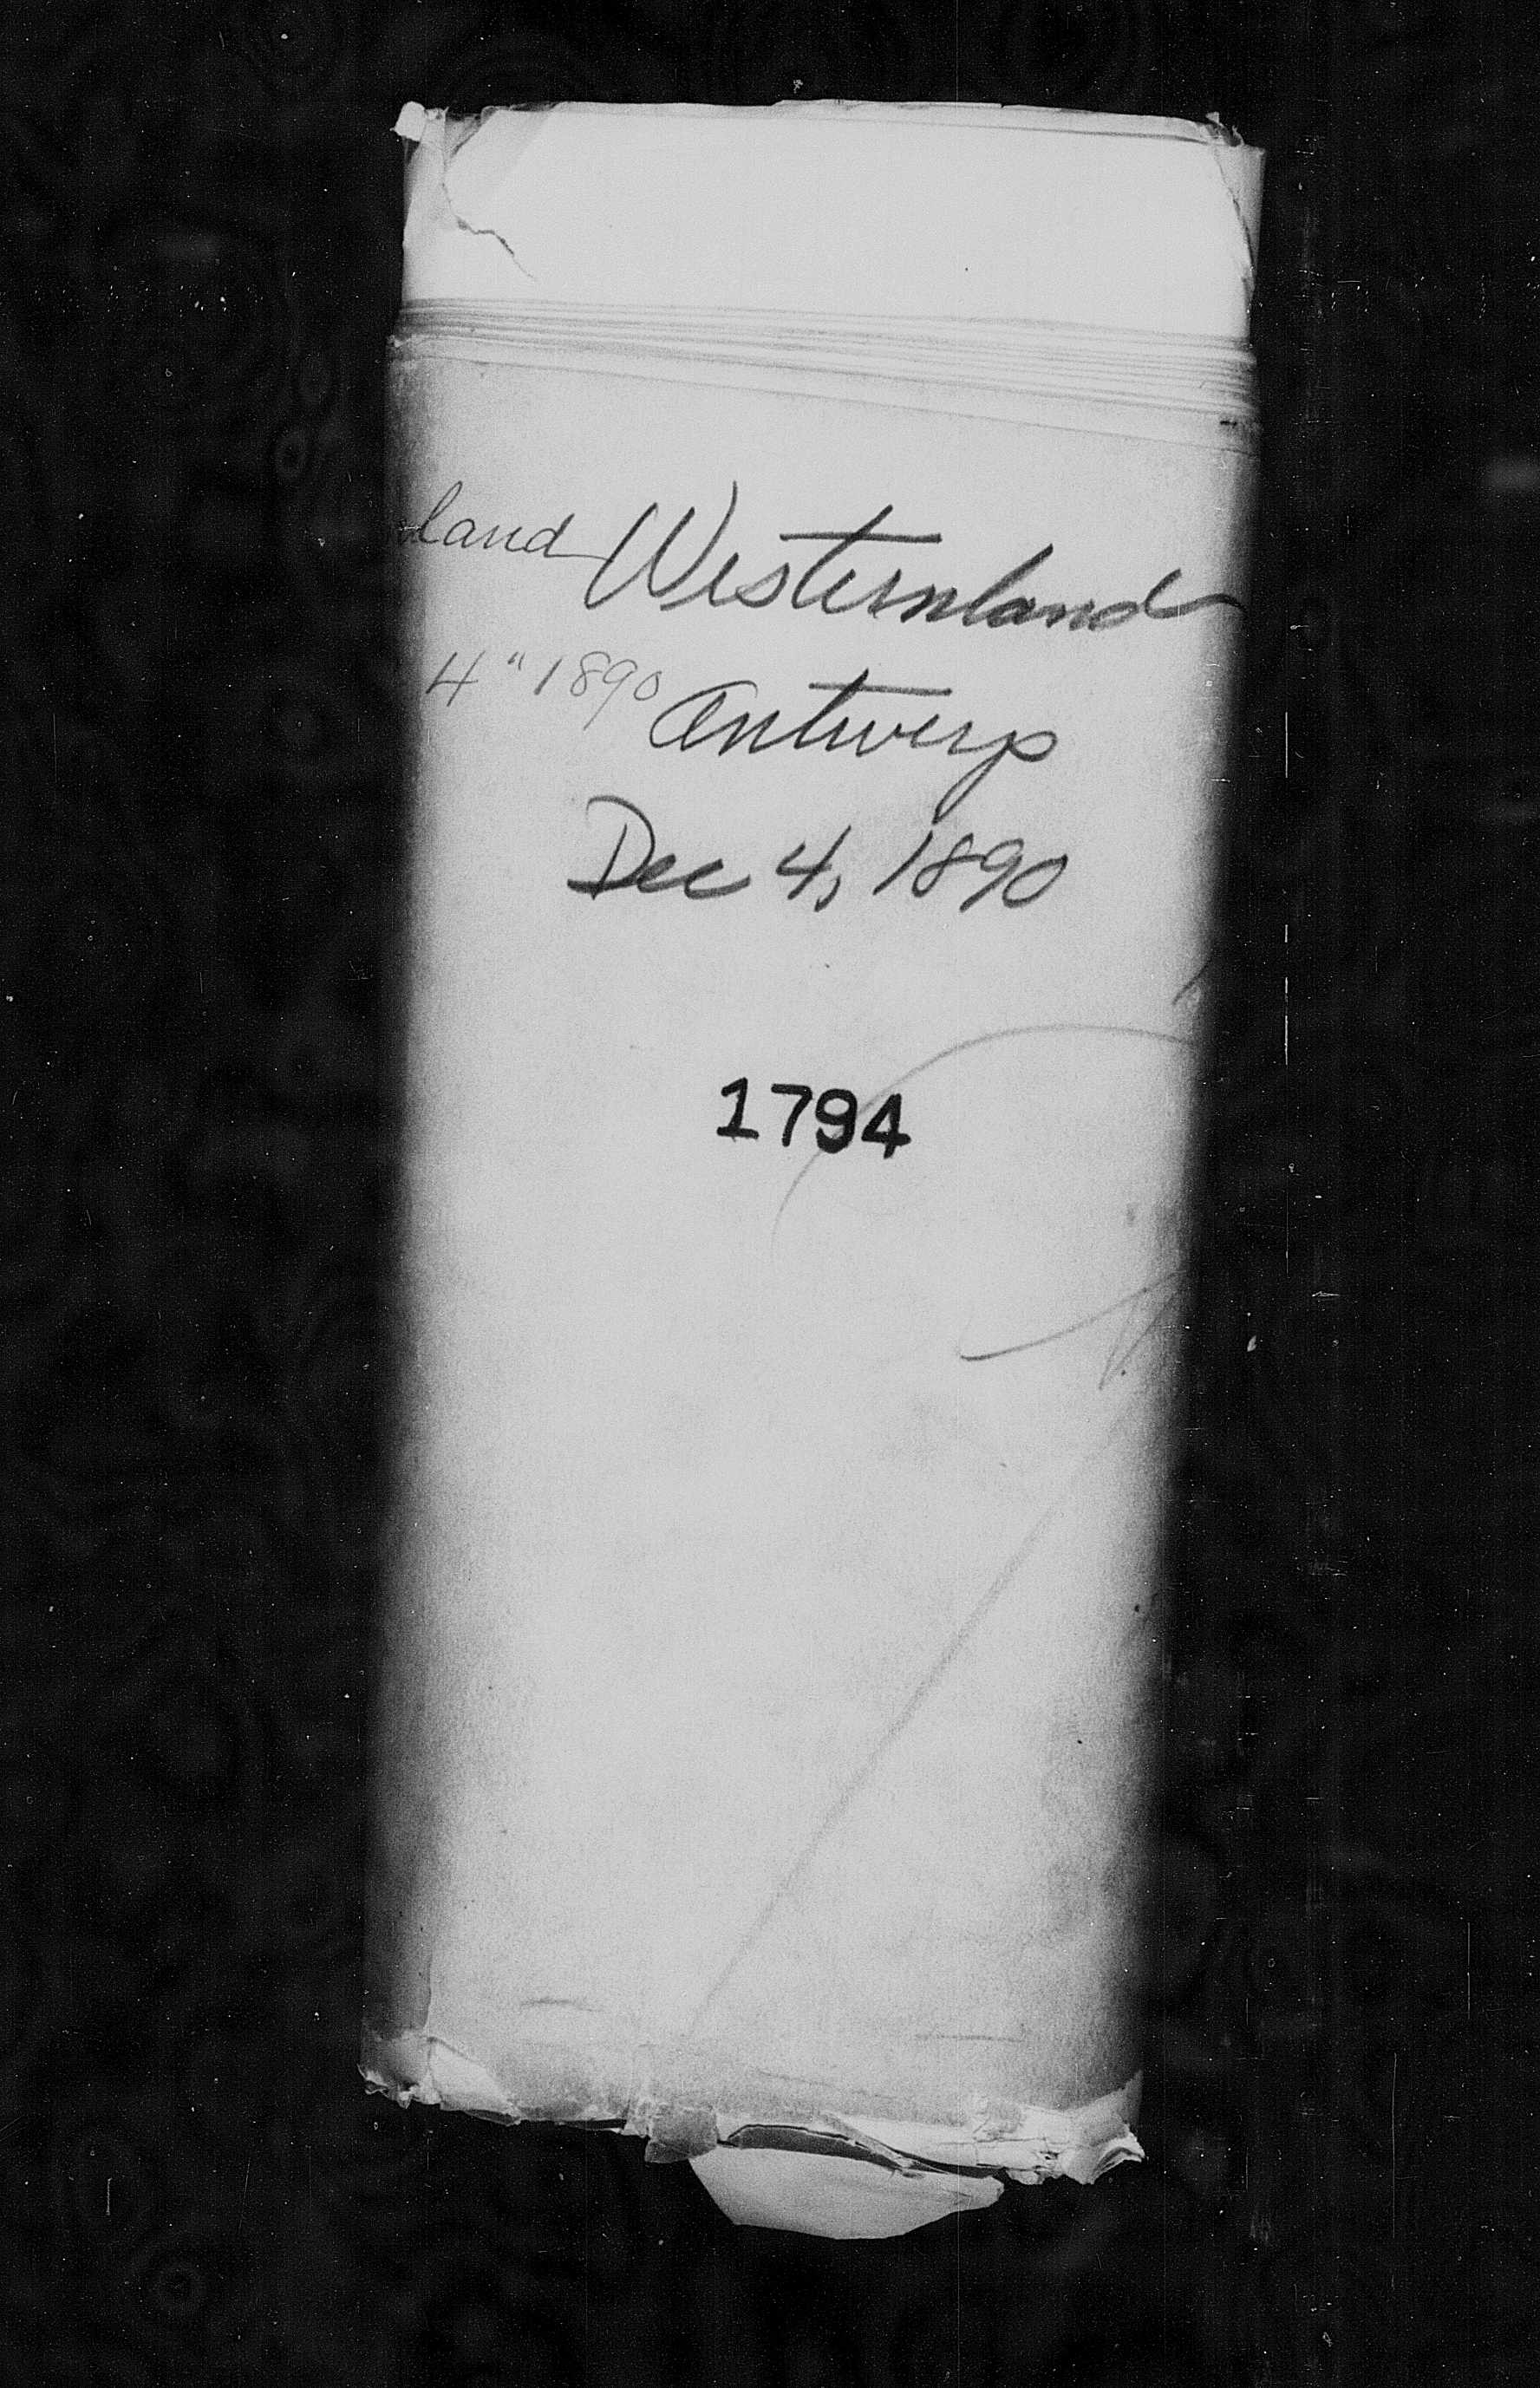 land Westernland
4" 1890 Antwerp
Dec 4, 1890
1794